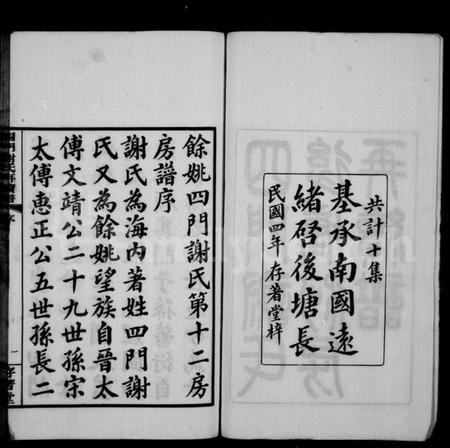 共計十集
基承南國遠
緒啓後塘長
民國四年存著堂梓
餘姚四門謝氏第十二房
房譜序
謝氏為海內著姓四門謝
氏又為餘姚望族自晉太
傅文靖公二十九世孫宋
太傅惠正公五世孫長二